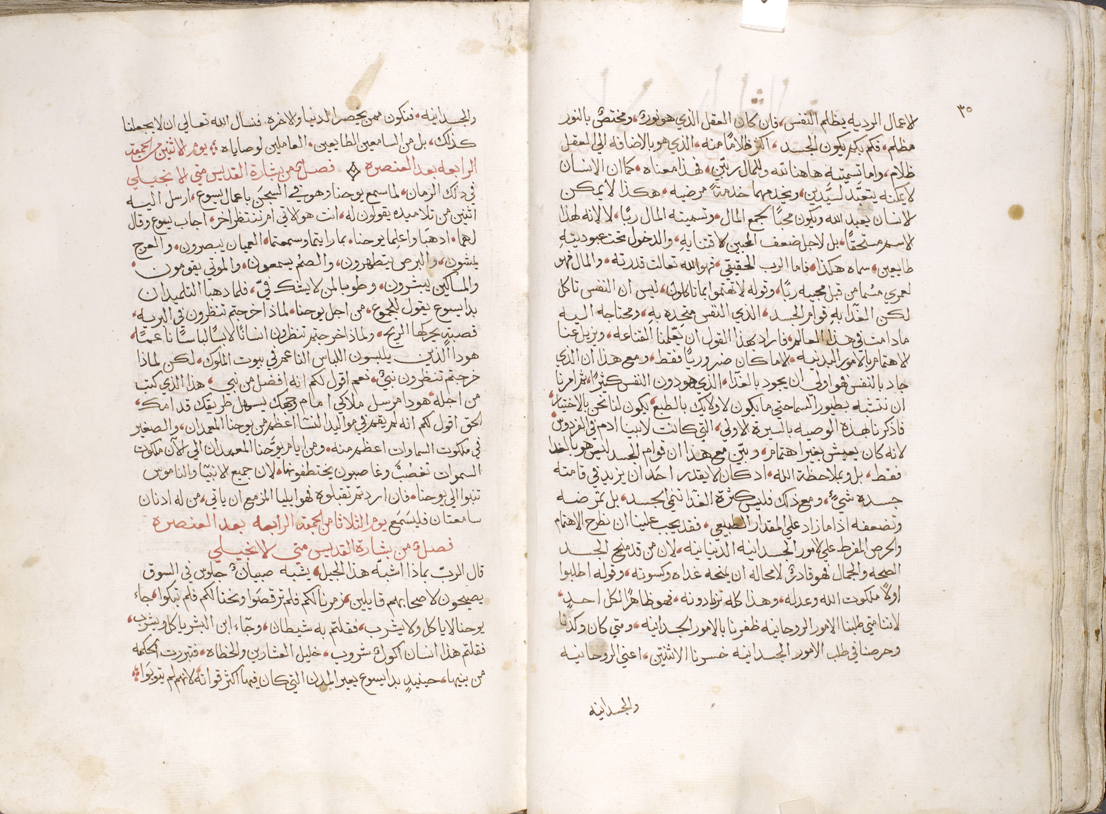 ٣٥
لاعمال الرديه يظلم النفس، فان كان العقل الذي هو نورك، ومختص بالنور
مظلم، فكم بكم يكون الجسد، اكثر ظلامًا منه، الذي هو بالاضافه الي العقل
ظلام، واما تسميته هاهنا الله والمال ربين، فهذا معناه، كما ان الانسان
لا يمكنه يتعبد لسيدين، ويخدمهما خدمةً مرضيه، هكذا لا يمكن
لانسان يعبد الله ويكون محبًا لجمع المال، وتسميته المال ربًا، لا لانه لهذا
الاسم مستحقًا، بل لاجل ضعف المحبين لاقتنايه، والدخول تحت عبوديته
طايعين، سماه هكذا، فاما الرب الحقيقي، فهو الله تعالت قدرته، والمال فهو
لعمري مسما من قبل محبيه ربًا، وقوله لا تهتموا بما تاكلون، ليس ان النفس تاكل
لكن الغذا به قوام الجسد، الذي النفس متحده به، ومحتاجه اليه
ما دامت في هذا العالم، فاراد بهذا القول ان يعلمنا القناعه، ويزيل عنا
الاهتمام بالامور البدنيه، الا ما كان ضروريًا فقط، ومع هذا ان الذي
جاد بالنفس فهو اولي ان يجود بالغذا، الذي هو دون النفس كثيرًا، ثم امرنا
ان نتشبه بطيور السما حتي ما يكون لاولايك بالطبع، يكون لنا نحن بالاختيار
فاذكرنا بهذه الوصيه بالسيره الاولي، التي كانت لابينا ادم في الفردوس
لانه كان يعيش بغير اهتمام، وبين مع هذا ان قوام الجسد ليس هو بالغذا
فقط، بل وبملاحظة الله، اذ كان لا يقدر احد ان يزيد في قامته
جسده شي، ومع ذلك فليس كثرة الغذا تنمي الجسد، بل تمرضه
وتضعفه اذا ما زاد علي المقدار الطبيعي، فقد يجب علينا ان نطرح الاهتمام
والحرص المفرط علي الامور الجسدانيه الدنيانيه، لان من قد منح الجسد
الصحه والجمال فهو قادر لا محاله ان يمنحه غذاه وكسوته، وقوله اطلبوا
اولًا ملكوت الله وعدله، وهذا كله تزادونه، فهو ظاهر لكل احدٍ،
لاننا متي طلبنا الامور الروحانيه ظفرنا بالامور الجسدانيه، ومتي كان وكدنا
وحرصنا في طلب الامور الجسدانيه خسرنا الاثنتين، اعني الروحانيه
والجسدانيه
والجسدانيه، فنكون ممن يخسر الدنيا والاخره، فنسال الله تعالي ان لا يجعلنا
كذلك، بل من السامعين الطايعين، العاملين لوصاياه، يوم الاثنين من الجمعه
الرابعه بعد العنصره فصل من بشارة القديس متي الانجيلي
في ذلك الزمان، لما سمع يوحنا وهو في السجن باعمال يسوع، ارسل اليه
اثنين من تلاميذه يقولون له، انت هو الاتي ام ننتظر اخر، اجاب يسوع وقال
لهما، اذهبا واعلما يوحنا، بما رايتما وسمعتما، العميان يبصرون، والعرج
يمشون، والبرص يتطهرون، والصم يسمعون، والموتي يقومون
والمساكين يبشرون، وطوبا لمن لا يشك فيّ، فلما ذهبا التلميذان
بدا يسوع يقول للجموع، من اجل يوحنا، لماذا خرجتم تنظرون في البريه،
قصبةٍ يحركها الريح، ولماذا خرجتم تنظرون انسانًا لابسًا لباسًا ناعمًا،
هوذا الذين يلبسون اللباس الناعم في بيوت الملوك، لكن لماذا
خرجتم تنظرون نبي، نعم اقول لكم انه افضل من نبي، هذا الذي كتب
من اجله، هوذا مرسل ملاكي امام وجهك يسهل طريقك قدامك،
الحق اقول لكم انه لم يقم في مواليد النسا اعظم من يوحنا المعمدان، والصغير
في ملكوت السماوات اعظم منه، ومن ايام يوحنا المعمدان الي الان ملكوت
السموات تغصب، وغاصبون يختطفونها، لان جميع الانبيا والناموس
تنبوا الي يوحنا، فان اردتم تقبلوه فهو ايليا المزمع ان ياتي، من له اذنان
سامعتان فليسمع يوم الثلاثا من الجمعه الرابعه بعد العنصره
فصل من بشارة القديس متي الانجيلي
قال الرب بماذا اشبه هذا الجيل، يشبه صبيان جلوس في السوق
يصيحون لاصحابهم قايلين، زمرنا لكم فلم ترقصوا ونحنا لكم فلم تبكوا، جاء
يوحنا لا ياكل ولا يشرب، فقلتم به شيطان، وجاء ابن البشر ياكل ويشرب،
فقلتم هذا انسان اكول شروب، خليل العشارين والخطاه، فتبررت الحكمه
من بنيها، حينيذٍ بدا يسوع يعير المدن التي كان فيها اكثر قواته لانهم لم يتوبوا،